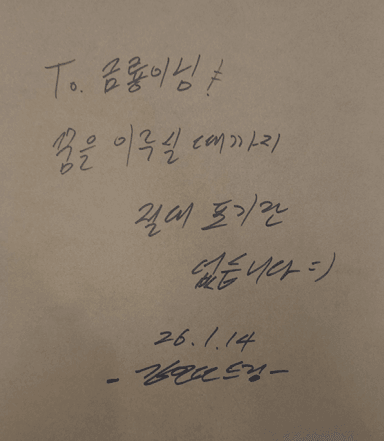 To. 금룡이님!
꿈을 이루실 때까지
절대 포기란
없습니다 =)
26.1.14
드림-